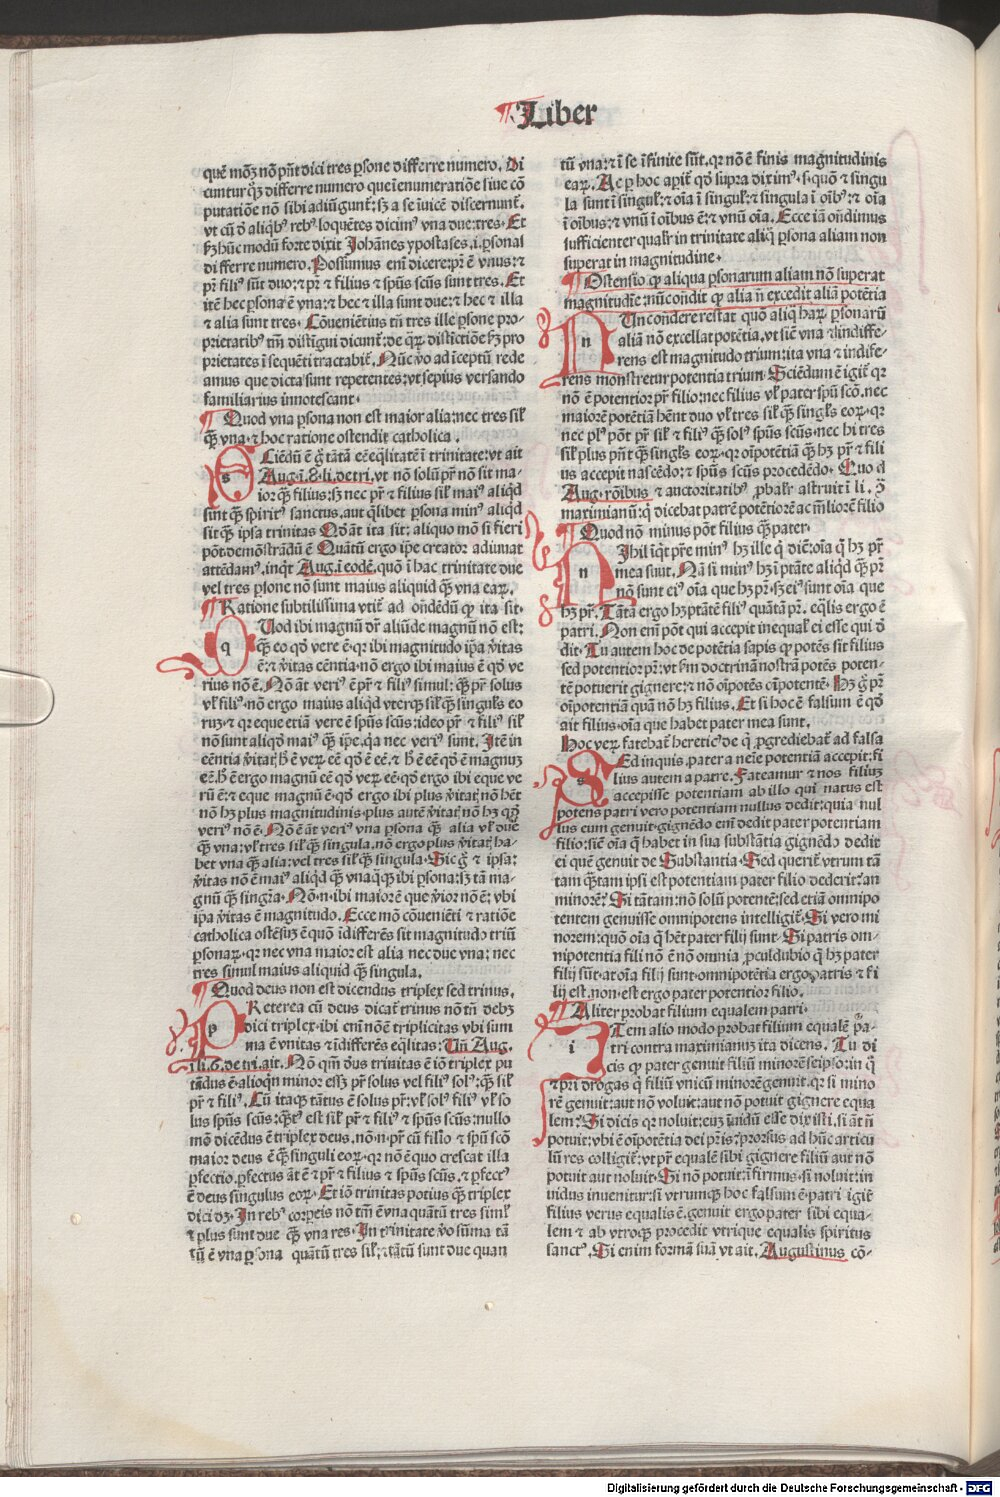 Liber
quẽ mõʒ nõ pñt dici tres ꝑsone differre numero. Di
cuntur qʒ differre numero que i enumeratiõe siue cõ
putatiõe nõ sibi adiũgunt᷑: sʒ a se iuicẽ discernunt᷑.
vt cũ ð aliqbꝰ rebꝰ loquẽtes dicimꝰ vna due: tres. Et
ßm hũc modũ forte dixit Johãnes ypostases .i. ꝑsonas
differre numero. Possumus eni dicere: pr̃ ẽ vnus: ⁊
pr̃ filiꝰ sũt duo: ⁊ pr̃ ⁊ filius ⁊ spũs scũs sunt tres. Et
itẽ hec ꝑsona ẽ vna: ⁊ hec ⁊ illa sunt due: ⁊ hec ⁊ illa
⁊ alia sunt tres. Cõueniẽtius tñ tres ille ꝑsone pro-
prietatibꝰ tm̃ distigui dicunt᷑: de qꝝ distictiõe ßm pro
prietates i sequẽti tractabit᷑. Nũc ỽo ad iceptũ rede
amus que dicta sunt repetentes: vt sepius versando
familiarius innotescant.
¶ Quod vna ꝑsona non est maior alia: nec tres sil̃
q̃ʒ vna. ⁊ hoc ratione ostendit catholica.
SCiẽdũ ẽ g̊ tãtã eẽ eq̃litatẽ i trinitate: vt ait
Aug. i .8. li. de tri. vt nõ solũ pr̃ nõ sit ma-
ior q̃ʒ filius: sʒ nec pr̃ ⁊ filius sil̃ maiꝰ aliqd
sint q̃ʒ spiritꝰ sanctus. aut q̃libet ꝑsona minꝰ aliqd
sit q̃ʒ ipsa trinitas Qð at ita sit: aliquo mõ si fieri
põt demõstrãdũ ẽ Quãtũ ergo ip̃e creator adiuuat
attẽdamꝰ. inqt Aug. i eodẽ. quõ i hac trinitate due
vel tres ꝑsone nõ sunt maius aliquid q̃ʒ vna eaꝝ.
¶ Ratione subtilissima vtit᷑ ad oñdẽdũ ꝙ ita sit.
QUod ibi magnũ dr̃ aliũde magnũ nõ est:
q̃ʒ eo qð vere ẽ. qꝛ ibi magnitudo ip̃a v̾itas
ẽ: ⁊ v̾itas eẽntia. nõ ergo ibi maius ẽ qð ve
rius nõ ẽ. Nõ at veriꝰ ẽ pr̃ ⁊ filiꝰ simul: q̃ʒ pr̃ solus
vl̃ filiꝰ. nõ ergo maius aliqd vterqʒ sil̃ q̃ʒ singl̃s eo
ruʒ. ⁊ qꝛ eque etiã vere ẽ spũs scũs: ideo pr̃ ⁊ filiꝰ sil̃
nõ sunt aliqð maiꝰ q̃ʒ ip̃e. qa nec veriꝰ sunt. Itẽ in
eẽntia v̾itat᷑ h̾ ẽ veꝝ eẽ qð ẽ eẽ. ⁊ h̾ ẽ eẽ qð ẽ magnuʒ
eẽ. h̾ ẽ ergo magnũ eẽ qð veꝝ eẽ. qð ergo ibi eque ve
rũ ẽ: ⁊ eque magnũ ẽ. qð ergo ibi plus v̾itat᷑ nõ hẽt
nõ hʒ plus magnitudinis. plus autẽ v̾itat᷑ nõ hʒ qð
veriꝰ nõ ẽ. Nõ ẽ at veriꝰ vna ꝑsona q̃ʒ alia vl̃ due
q̃ʒ vna: vl̃ tres sil̃ q̃ʒ singula. nõ ergo plus v̾itat᷑ ha-
bet vna q̃ʒ alia: vel tres sil̃ q̃ʒ singula. Sic g̊ ⁊ ipsa:
v̾itas nõ ẽ maiꝰ aliqd q̃ʒ vnaqueqʒ ibi ꝑsona: sʒ tã ma-
gnũ q̃ʒ singl̃a. Nõ .n. ibi maiorẽ que v̾ior nõ ẽ: vbi
ip̃a v̾itas ẽ magnitudo. Ecce mõ cõueniẽti ⁊ ratiõe
catholica ostẽsuʒ ẽ quõ idifferẽs sit magnitudo triũ
ꝑsonaꝝ. qꝛ nec vna maior est alia nec due vna: nec
tres simul maius aliquid q̃ʒ singula.
¶ Quod deus non est dicendus triplex sed trinus.
PReterea cũ deus dicat᷑ trinus nõ tñ debʒ
dici triplex. ibi eni nõ ẽ triplicitas vbi sum
ma ẽ vnitas ⁊ idifferẽs eq̃litas: Vñ Aug.
i li. 6. de tri. ait. Nõ qm̃ d̃us trinitas ẽ iõ triplex pu
tãdus ẽ. alioqn minor esset pr̃ solus vel filiꝰ solꝰ: q̃ʒ sil̃
pr̃ ⁊ filiꝰ. Cũ itaqʒ tãtus ẽ solus pr̃: vl̃ solꝰ filiꝰ vl̃ so
lus spũs scũs: q̃tꝰ est sil̃ pr̃ ⁊ filiꝰ ⁊ spũs scũs: nullo
mõ dicẽdus ẽ triplex deus. nõ .n. pr̃ cũ filio ⁊ spũ scõ
maior deus ẽ q̃ʒ singuli eoꝝ. qꝛ nõ ẽ quo crescat illa
ꝑfectio. ꝑfectus at ẽ ⁊ pr̃ ⁊ filius ⁊ spũs scũs. ⁊ ꝑfectꝰ
ẽ deus singulus eoꝝ. Et iõ trinitas potius q̃ʒ triplex
dici dʒ. In rebꝰ corꝑeis nõ tm̃ ẽ vna quãtũ tres siml̃
⁊ plus sunt due q̃ʒ vna res. In trinitate ỽo sũma tã
tũ ẽ vna ꝑsona quãtũ tres sil̃: ⁊ tãtũ sunt due quan
tũ vna: ⁊ i se ifinite sũt. qꝛ nõ ẽ finis magnitudinis
eaꝝ. Ac ꝑ hoc aꝑit᷑ qð supra diximꝰ. s. quõ ⁊ singu
la sunt i singul̃: ⁊ oĩa i singul̃: ⁊ singula i oĩbꝰ: ⁊ oĩa
i oĩbus: ⁊ vnũ i oĩbus ẽ: ⁊ vnũ oĩa. Ecce iã oñdimus
sufficienter qualr̃ in trinitate aliq̃ ꝑsona aliam non
superat in magnitudine.
¶ Ostensio ꝙ aliqua ꝑsonarum aliam nõ superat
magnitudĩe: nũc oñdit ꝙ alia ñ excedit aliã potẽtia
NUnc oñdere restat quõ aliq̃ haꝝ ꝑsonarũ
aliã nõ excellat potẽtia. vt sicut vna ⁊ indiffe-
rens est magnitudo trium: ita vna ⁊ indife-
rens monstretur potentia trium. Sciẽdum ẽ igit᷑ qꝛ
nõ ẽ potentior pr̃ filio: nec filius vl̃ pater spũ scõ. nec
maiorẽ potẽtiã hẽnt duo vl̃ tres sil̃ q̃ʒ singl̃s eoꝝ. qꝛ
nec plꝰ põt pr̃ sil̃ ⁊ filiꝰ q̃ʒ solꝰ spũs scũs. nec hi tres
sil̃ plus pñt q̃ʒ singl̃s eoꝝ. qꝛ oĩpotẽtiã q̃ʒ hʒ pr̃ ⁊ fili
us accepit nascẽdo: ⁊ spũs scũs procedẽdo. Quod
Aug. rõibus ⁊ auctoritatibꝰ ꝓbabr̃ astruit i li. ꝯ
maximianũ: q̃ dicebat patrẽ potẽtiorẽ ac mlĩorẽ filio
¶ Quod nõ minus põt filius q̃ʒ pater.
NIhil iqt pr̃e minꝰ hʒ ille q̃ dic̃: oĩa q̃ hʒ pr̃
mea sũt. Nã si minꝰ hʒ i ptãte aliqd q̃ʒ pr̃
nõ sunt eiꝰ oĩa que hʒ pr̃. sʒ eiꝰ sunt oĩa que
hʒ pr̃. Tãtã ergo hʒ ptãtẽ filiꝰ quãtã pr̃. eq̃lis ergo ẽ
patri. Non eni põt qui accepit inequal̃ ei esse qui ð
dit. Tu autem hoc de potẽtia sapis ꝙ potẽs sit filius
sed potentior pr̃: vt ßm doctrinã nostrã potẽs poten-
tẽ potuerit gignere: ⁊ nõ oĩpotẽs oĩpotentẽ. Hʒ g̊ pr̃
oĩpotentiã quã nõ hʒ filius. Et si hoc ẽ falsum ẽ qð
ait filius. oĩa que habet pater mea sunt.
Hoc veꝝ fatebat᷑ hereticꝰ de q̃ ꝓgrediebat᷑ ad falsa
SEd inquis. pater a neĩe potentiã accepit: fi
lius autem a patre. Fateamur ⁊ nos filiuʒ
accepisse potentiam ab illo qui natus est
potens patri vero potentiam nullus dedit: quia nul
lus eum genuit. gignẽdo eni dedit pater potentiam
filio: sic̃ oĩa q̃ habet in sua substãtia gignẽdo dedit
ei quẽ genuit de Substantia. Sed querit᷑ vtrum tã
tam q̃tam ipsi est potentiam pater filio dederit: an
minorẽ? Si tãtam: nõ solũ potentẽ: sed etiã omnipo
tentem genuisse omnipotens intelligit᷑. Si vero mi
norem: quõ oĩa q̃ hẽt pater filij sunt. Si patris om-
nipotentia filij nõ ẽ nõ omnia ꝓculdubio q̃ hʒ pater
filij sũt: at oĩa filij sunt. omnipotẽtia ergo patris ⁊ fi
lij est. non est ergo pater potentior filio.
¶ Aliter probat filium equalem patri.
ITem alio modo probat filium equalẽ pa-
tri contra maximianuʒ ita dicens. Tu di
cis ꝙ pater genuit filiũ minorẽ seipso: in q̃
⁊ pri drogas q̃ filiũ vnicũ minorẽ genuit. qꝛ si mino
rẽ genuit: aut nõ voluit: aut nõ potuit gignere equa
lem: Si dicis qꝛ noluit: euʒ inuidũ esse dixisti. si at ñ
potuit: vbi ẽ oĩpotẽtia dei pr̃is: prorsus ad hũc articu
lũ res colligit᷑: vt pr̃ equalẽ sibi gignere filiũ aut nõ
potuit aut noluit. Si nõ potuit: ifirmus. si noluit: in
uidus inuenitur: si vtrumqʒ hoc falsum ẽ. patri igit᷑
filius verus equalis ẽ. genuit ergo pater sibi equa-
lem ⁊ ab vtroqʒ procedit vtrique equalis spiritus
sanctꝰ. Si enim formã suã vt ait. Augustinus cõ-
Digitalisierung gefördert durch die Deutsche Forschungsgemeinschaft - DFG